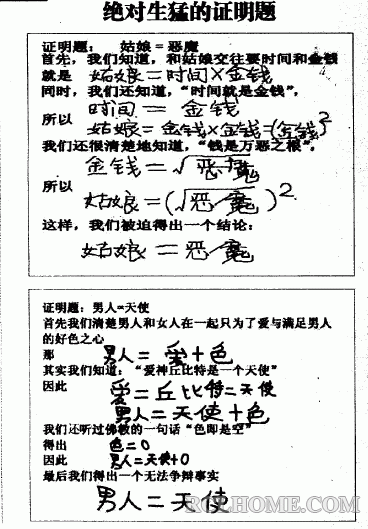 绝对生猛的证明题
证明题： 姑娘=恶魔
首先，我们知道，和姑娘交往要时间和金钱
就是 姑娘=时间×金钱
同时，我们还知道，“时间就是金钱”，
时间 = 金钱
所以
姑娘=金钱×金钱=(金钱)²
我们还很清楚地知道，“钱是万恶之根”，
金钱=√恶魔
所以
姑娘=(√恶魔)²
这样，我们被迫得出一个结论：
姑娘=恶魔
证明题：男人=天使
首先我们清楚男人和女人在一起只为了爱与满足男人
的好色之心
那 男人=爱+色
其实我们知道：“爱神丘比特是一个天使”
因此 爱=丘比特=天使
男人=天使+色
我们还听过佛教的一句话“色即是空”
得出 色=0
因此 男人=天使+0
最后我们得出一个无法争辩事实
男人=天使